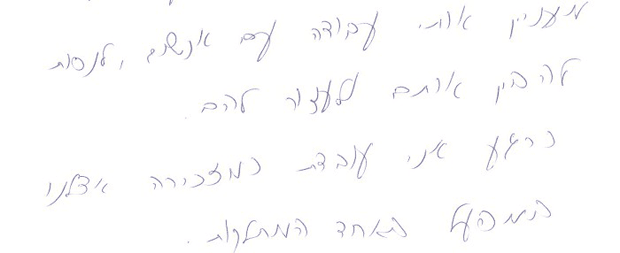 מעניין אותי עבודה עם אנשים, לנסות
להבין אותם ולעזור להם.
כרגע אני עובדת כמזכירה אצלנו
במפעל באחד המחלקות.